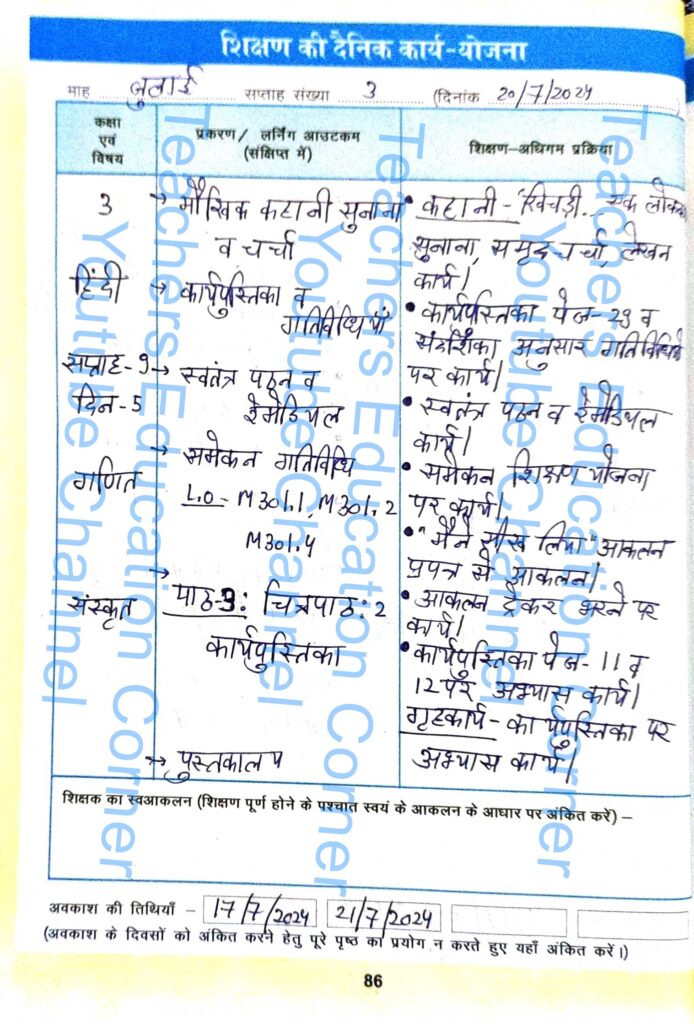 शिक्षण की दैनिक कार्य-योजना
माह जुलाई सप्ताह संख्या 3 (दिनांक 20/7/2024
कक्षा एवं विषय
प्रकरण/ लर्निंग आउटकम (संक्षिप्त में)
शिक्षण-अधिगम प्रक्रिया
3
हिंदी
सप्ताह-9
दिन-5
गणित
संस्कृत
→ मौखिक कहानी सुनाना
व चर्चा
→ कार्यपुस्तिका व
गतिविधियाँ
→ स्वतंत्र पठन व
रेमेडियल
→ समेकन गतिविधि
L.O - M301.1, M301.2
M301.4
→ पाठ-3: चित्रपाठ: 2
कार्यपुस्तिका
→ पुस्तकालय
• कहानी - खिचड़ी... एक लोक
सुनाना, समूह चर्चा, लेखन
कार्य।
• कार्यपुस्तिका पेज-29 व
संदर्शिका अनुसार गतिविधियों
पर कार्य।
• स्वतंत्र पठन व रेमेडियल
कार्य।
• समेकन शिक्षण योजना
पर कार्य।
• "मैंने सीख लिया" आकलन
प्रपत्र से आकलन।
• आकलन ट्रैकर भरने पर
कार्य।
• कार्यपुस्तिका पेज-11 व
12 पर अभ्यास कार्य।
गृहकार्य - कार्यपुस्तिका पर
अभ्यास कार्य।
शिक्षक का स्वआकलन (शिक्षण पूर्ण होने के पश्चात स्वयं के आकलन के आधार पर अंकित करें) –
अवकाश की तिथियाँ – 17/7/2024 21/7/2024
(अवकाश के दिवसों को अंकित करने हेतु पूरे पृष्ठ का प्रयोग न करते हुए यहाँ अंकित करें।)
86
Teachers Education Corner
Youtube Channel
Teachers Education Corner
Youtube Channel
Teachers Education Corner
Youtube Channel